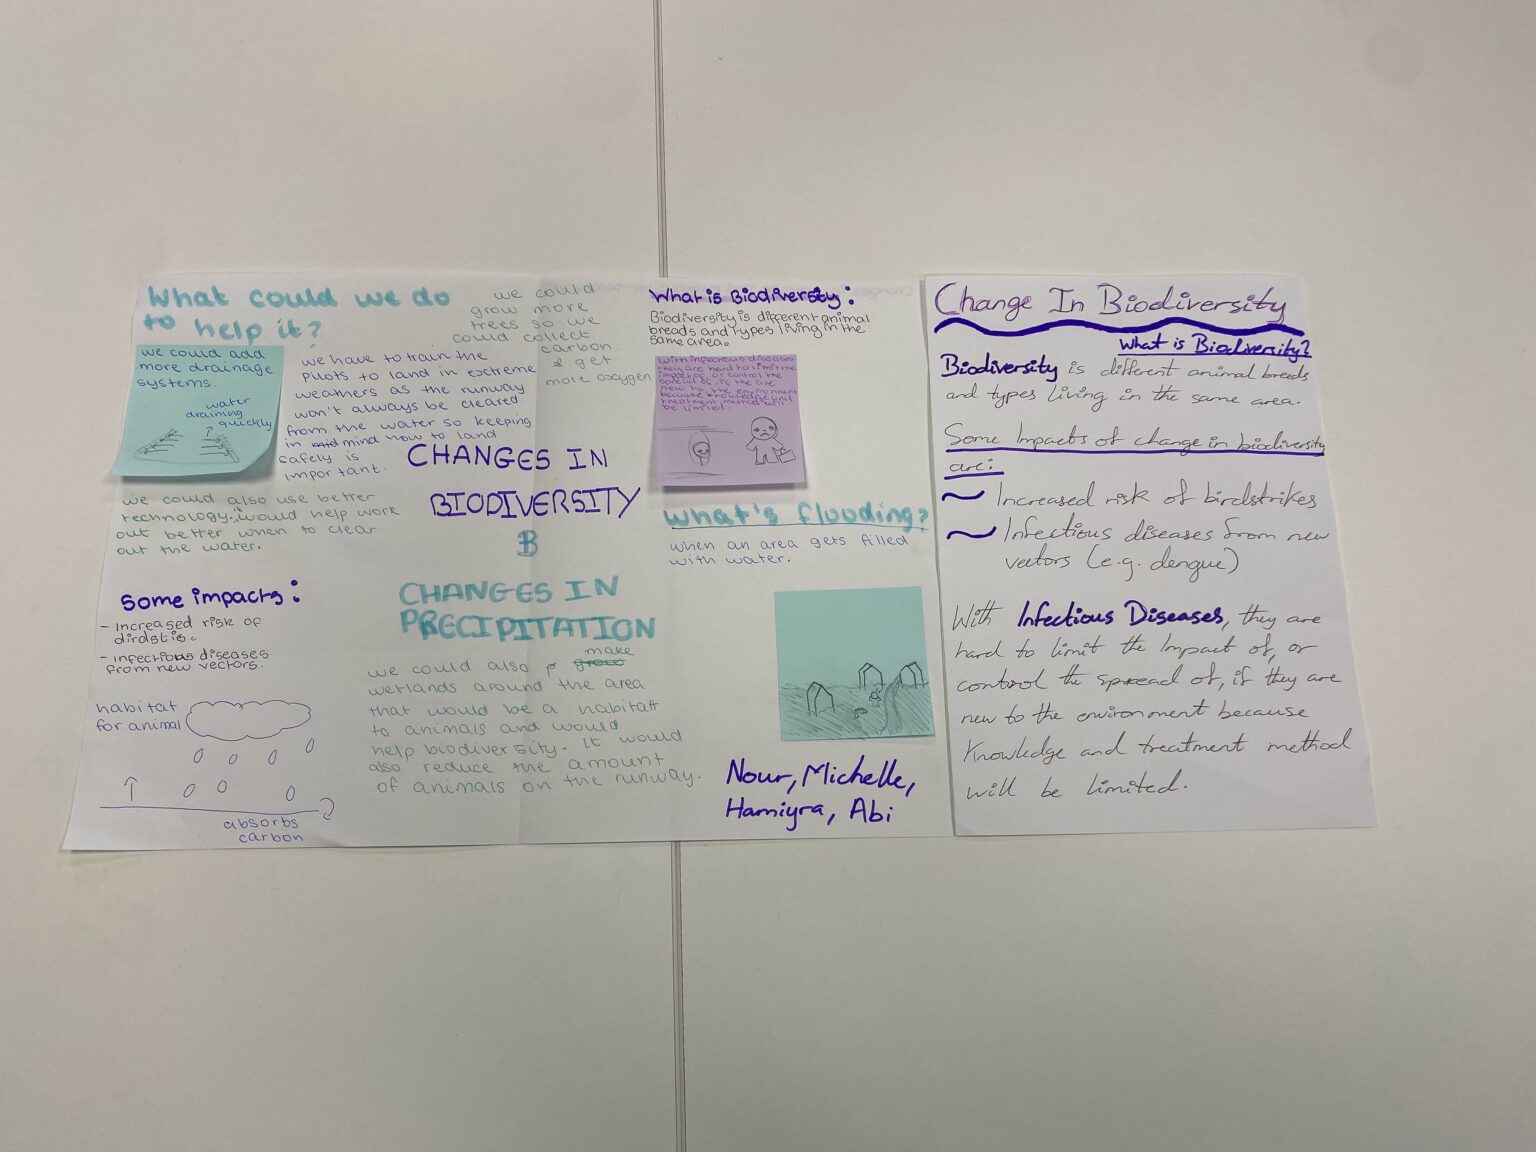 What could we do
to help it?
we could add
more drainage
systems.
water
draining
quickly
we have to train the
pilots to land in extreme
weathers as the runway
won't always be cleared
from the water so keeping
in mind how to land
safely is
important.
we could
grow more
trees so we
could collect
carbon
& get
more oxygen
we could also use better
technology. it would help work
out better when to clear
out the water.
Some impacts:
- increased risk of
dirdstic.
- infectious diseases
from new vectors.
habitat
for animal
absorbs
carbon
CHANGES IN
BIODIVERSITY
CHANGES IN
PRECIPITATION
we could also make
wetlands around the area
that would be a habitatt
to animals and would
help biodiversity. It would
also reduce the amount
of animals on the runway.
What is Biodiversity:
Biodiversity is different animal
breads and types living in the
same area.
With infectious diseases
they are hard to limit the
impact of, or control the
spread of, if the are
new to the environment
because knowledge and
treatment method will
be limited.
What's flooding?
when an area gets filled
with water.
Nour, Michelle,
Hamiyra, Abi
Change In Biodiversity
What is Biodiversity?
Biodiversity is different animal breeds
and types living in the same area.
Some Impacts of change in biodiversity
are:
~ Increased risk of birdstrikes
~ Infectious diseases from new
vectors (e.g. dengue)
With Infectious Diseases, they are
hard to limit the impact of, or
control the spread of, if they are
new to the environment because
Knowledge and treatment method
will be limited.